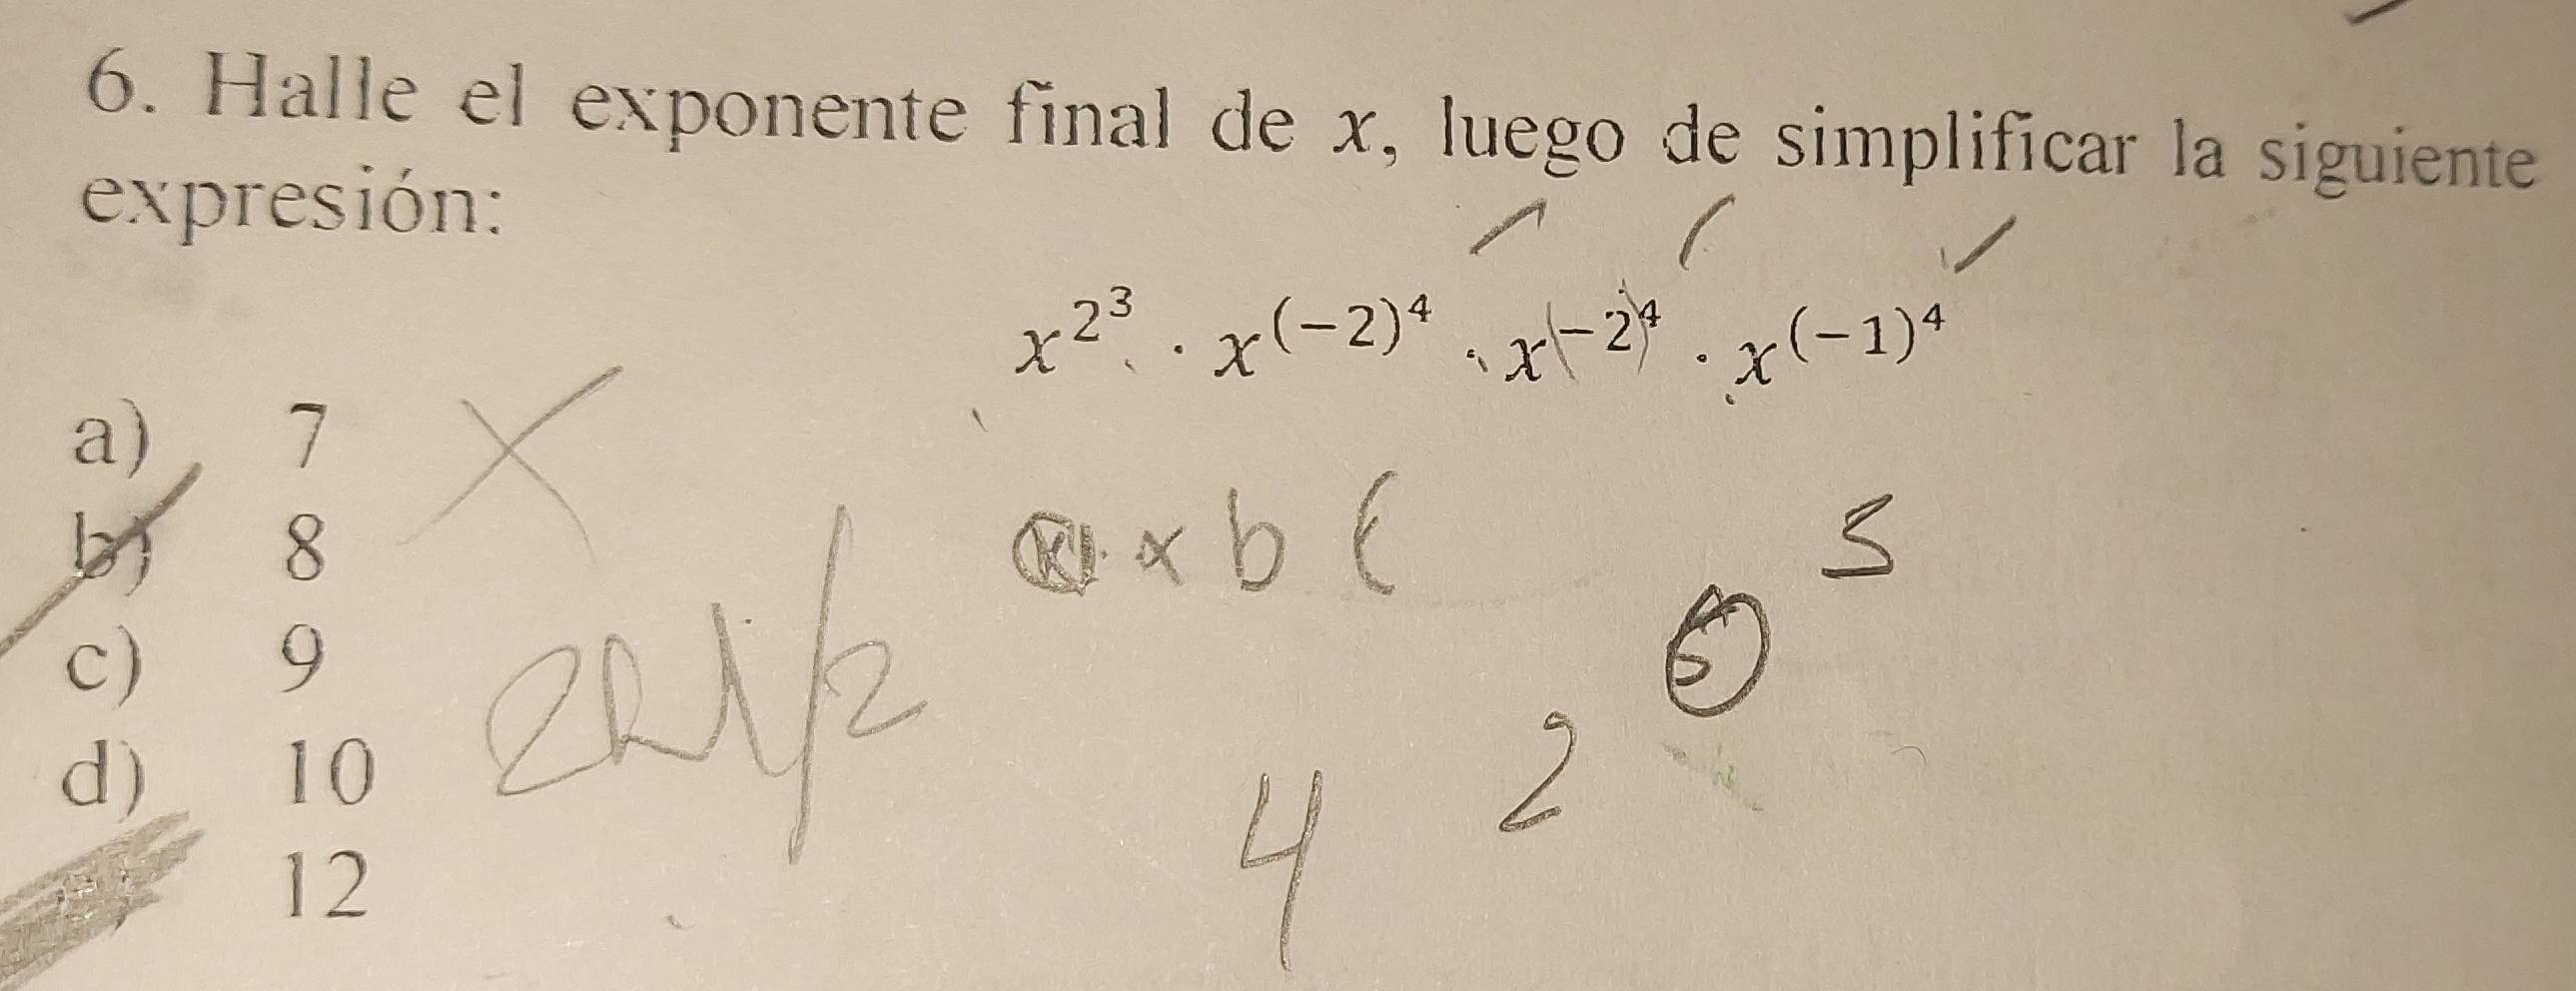 6. Halle el exponente final de x, luego de simplificar la siguiente
expresión:
x^{2^3} · x^{(-2)^4} · x^{(-2)^4} · x^{(-1)^4}
a) 7
b) 8
c) 9
d) 10
12
x b (
5
2
4